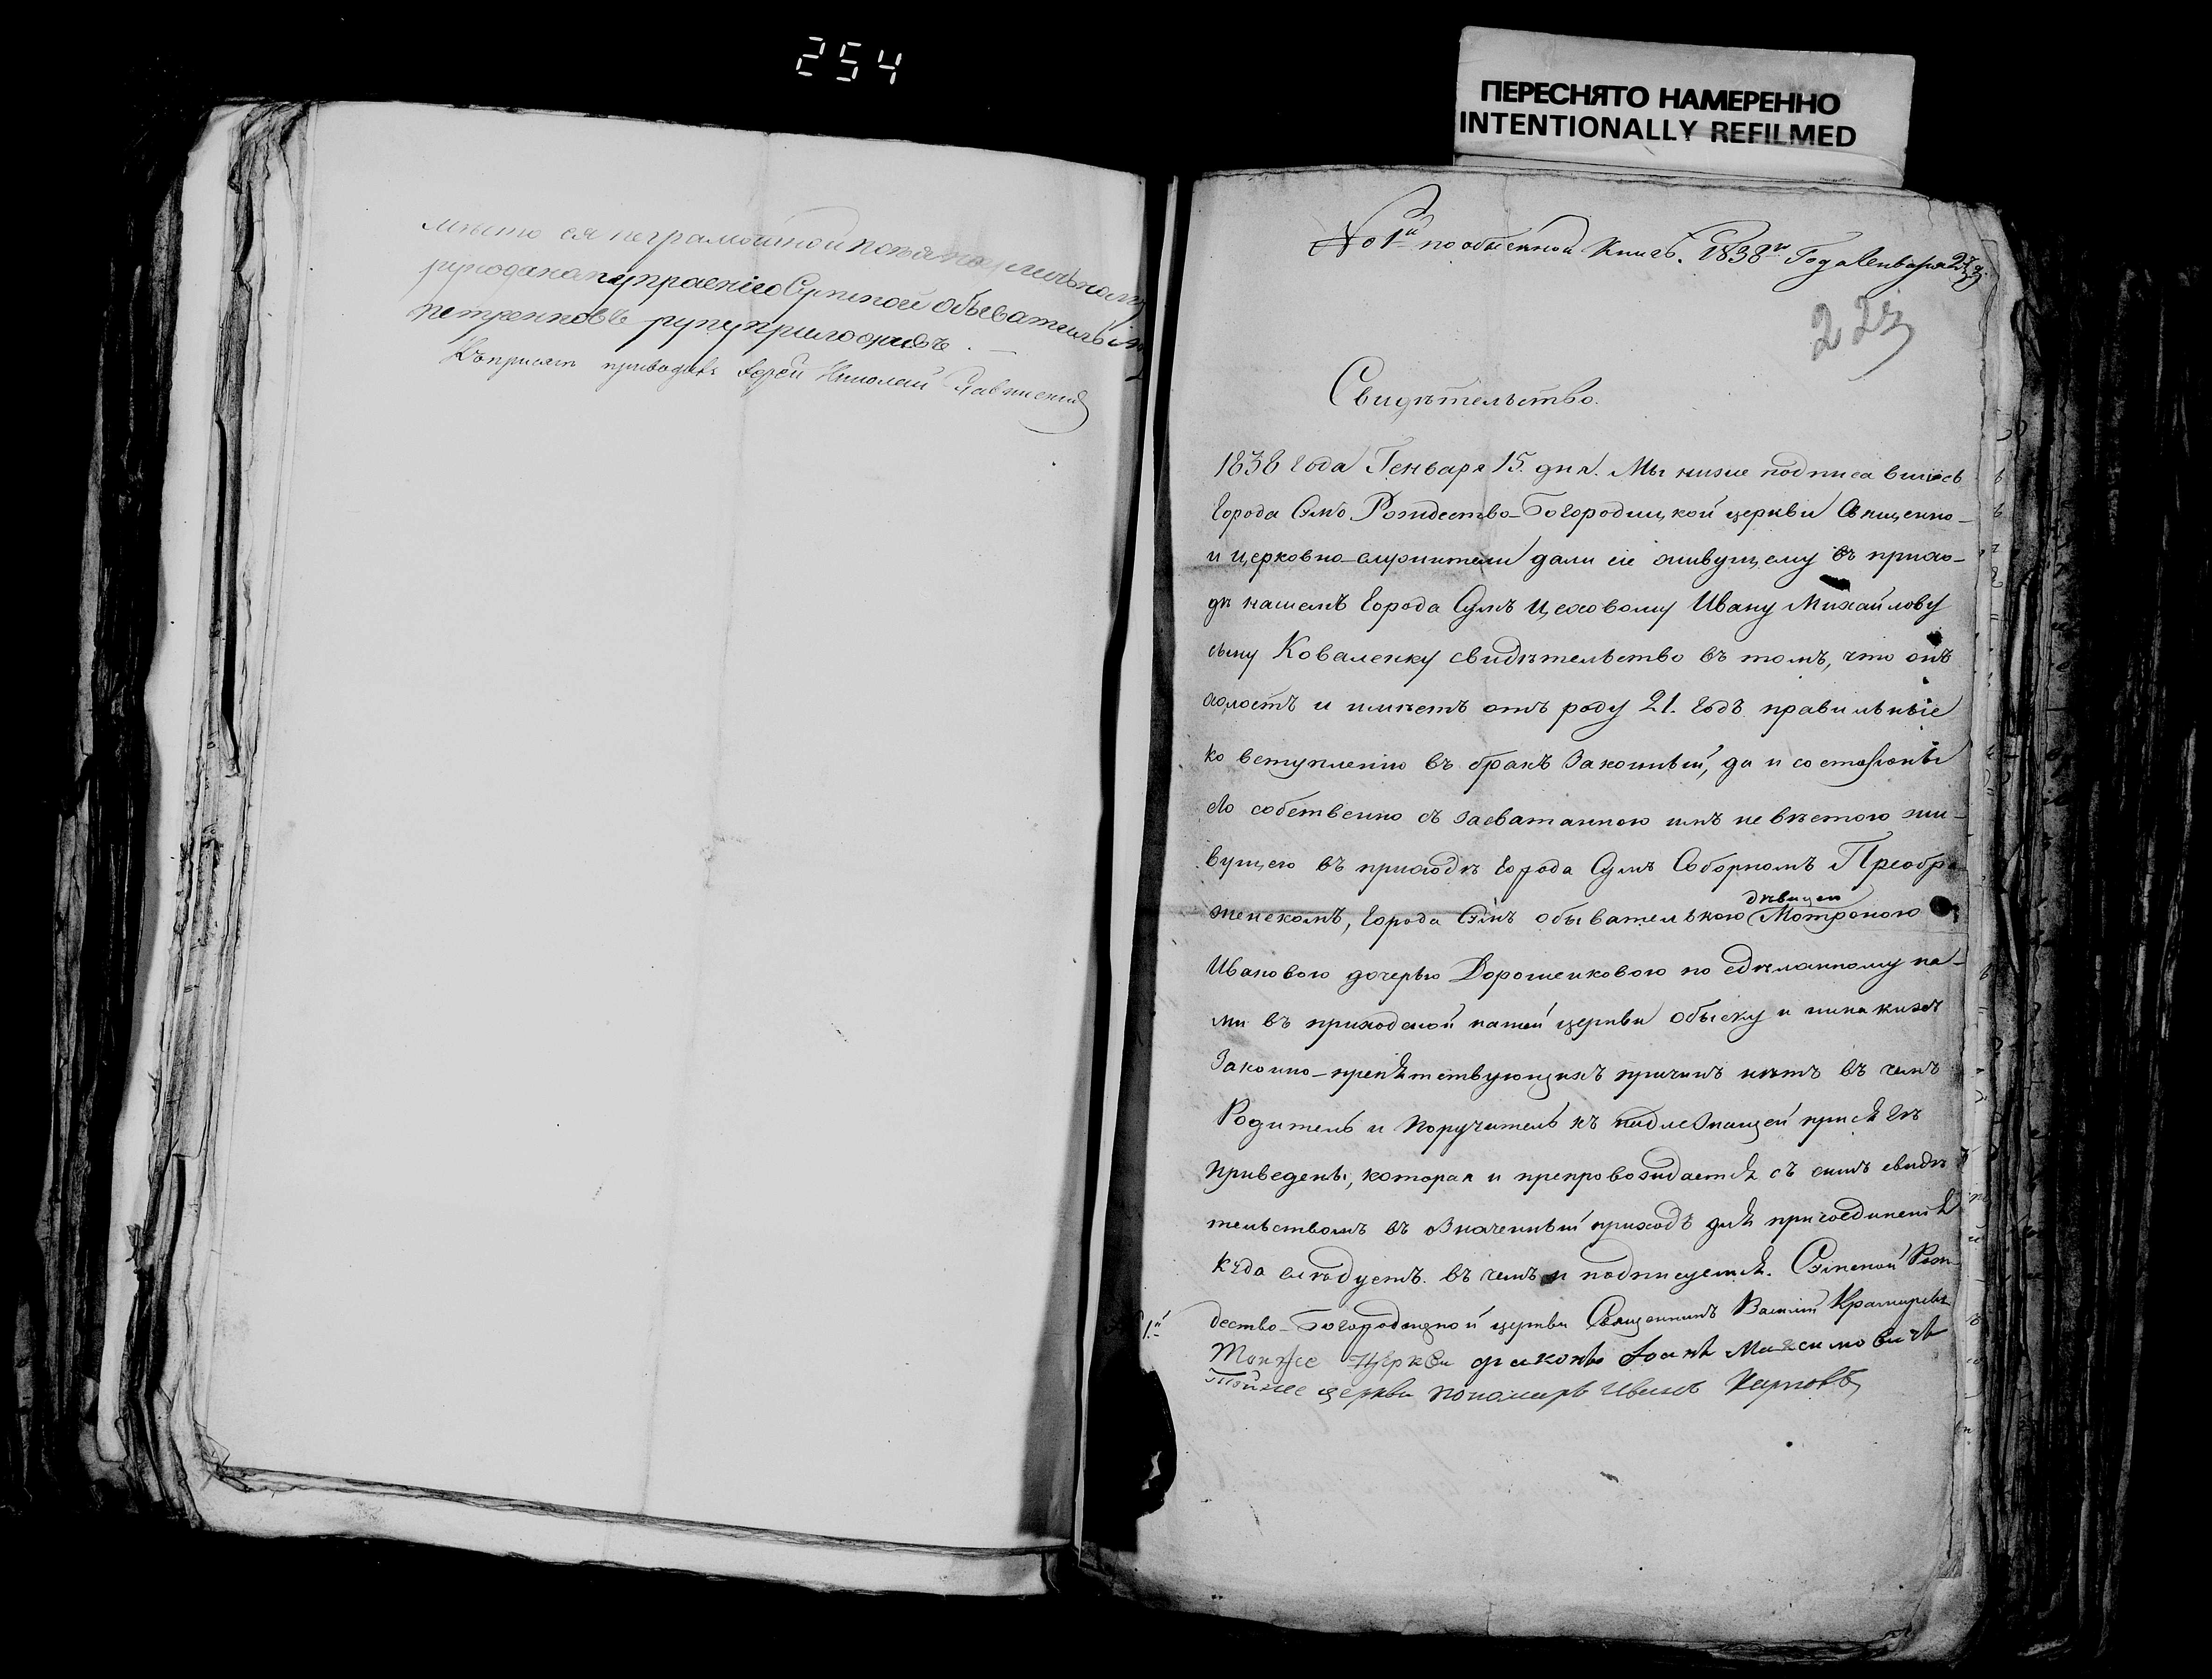 254
ПЕРЕСНЯТО НАМЕРЕННО
INTENTIONALLY REFILMED
вместо ея неграмотной по ея
рукоданапупрошенію Сумской обыватель
Петренковъ руку приложилъ. —
Къ присяги приводилъ Іерей Николай
№ 1й по обыскной Книгѣ. 1838го Года Генваря 27 д.
223
Свидѣтельство.
1838 года Генваря 15. дня. Мы ниже подписавшіесь
Города Сумъ Рождество-Богородицкой церкви Священно-
и церковно-служители дали сіе живущему въ прихо-
дѣ нашемъ Города Сумъ Цеховому Ивану Михайлову
сыну Коваленку свидѣтельство въ томъ, что онъ
холостъ и имѣетъ отъ роду 21. годъ правильные
ко вступленію въ бракъ Законный, да и со стороны
его собственно съ засватанною имъ невѣстою жи-
вущею въ приходѣ Города Сумъ Соборномъ Преобра-
женскомъ, Города Сумъ обывателькою дѣвицею Мотроною
Ивановою дочерью Дорошенковою по сдѣланному на-
ми въ приходской нашей церкви обыску и никакихъ
Законно-препятствующихъ причинъ нѣтъ въ чемъ
Родитель и Поручитель къ надлежащей присягѣ
приведены, которая и препровождается съ симъ свидѣ-
тельствомъ въ означенный приходъ для присоединенія
куда слѣдуетъ. въ чемъ и подписуемся. Сумской Рож-
дество-Богородицкой церкви Священникъ Василій Крамаревъ
Тояже Церкви діаконъ Іоанъ Максимовичъ
Тойже церкви пономарь Иванъ Карповъ